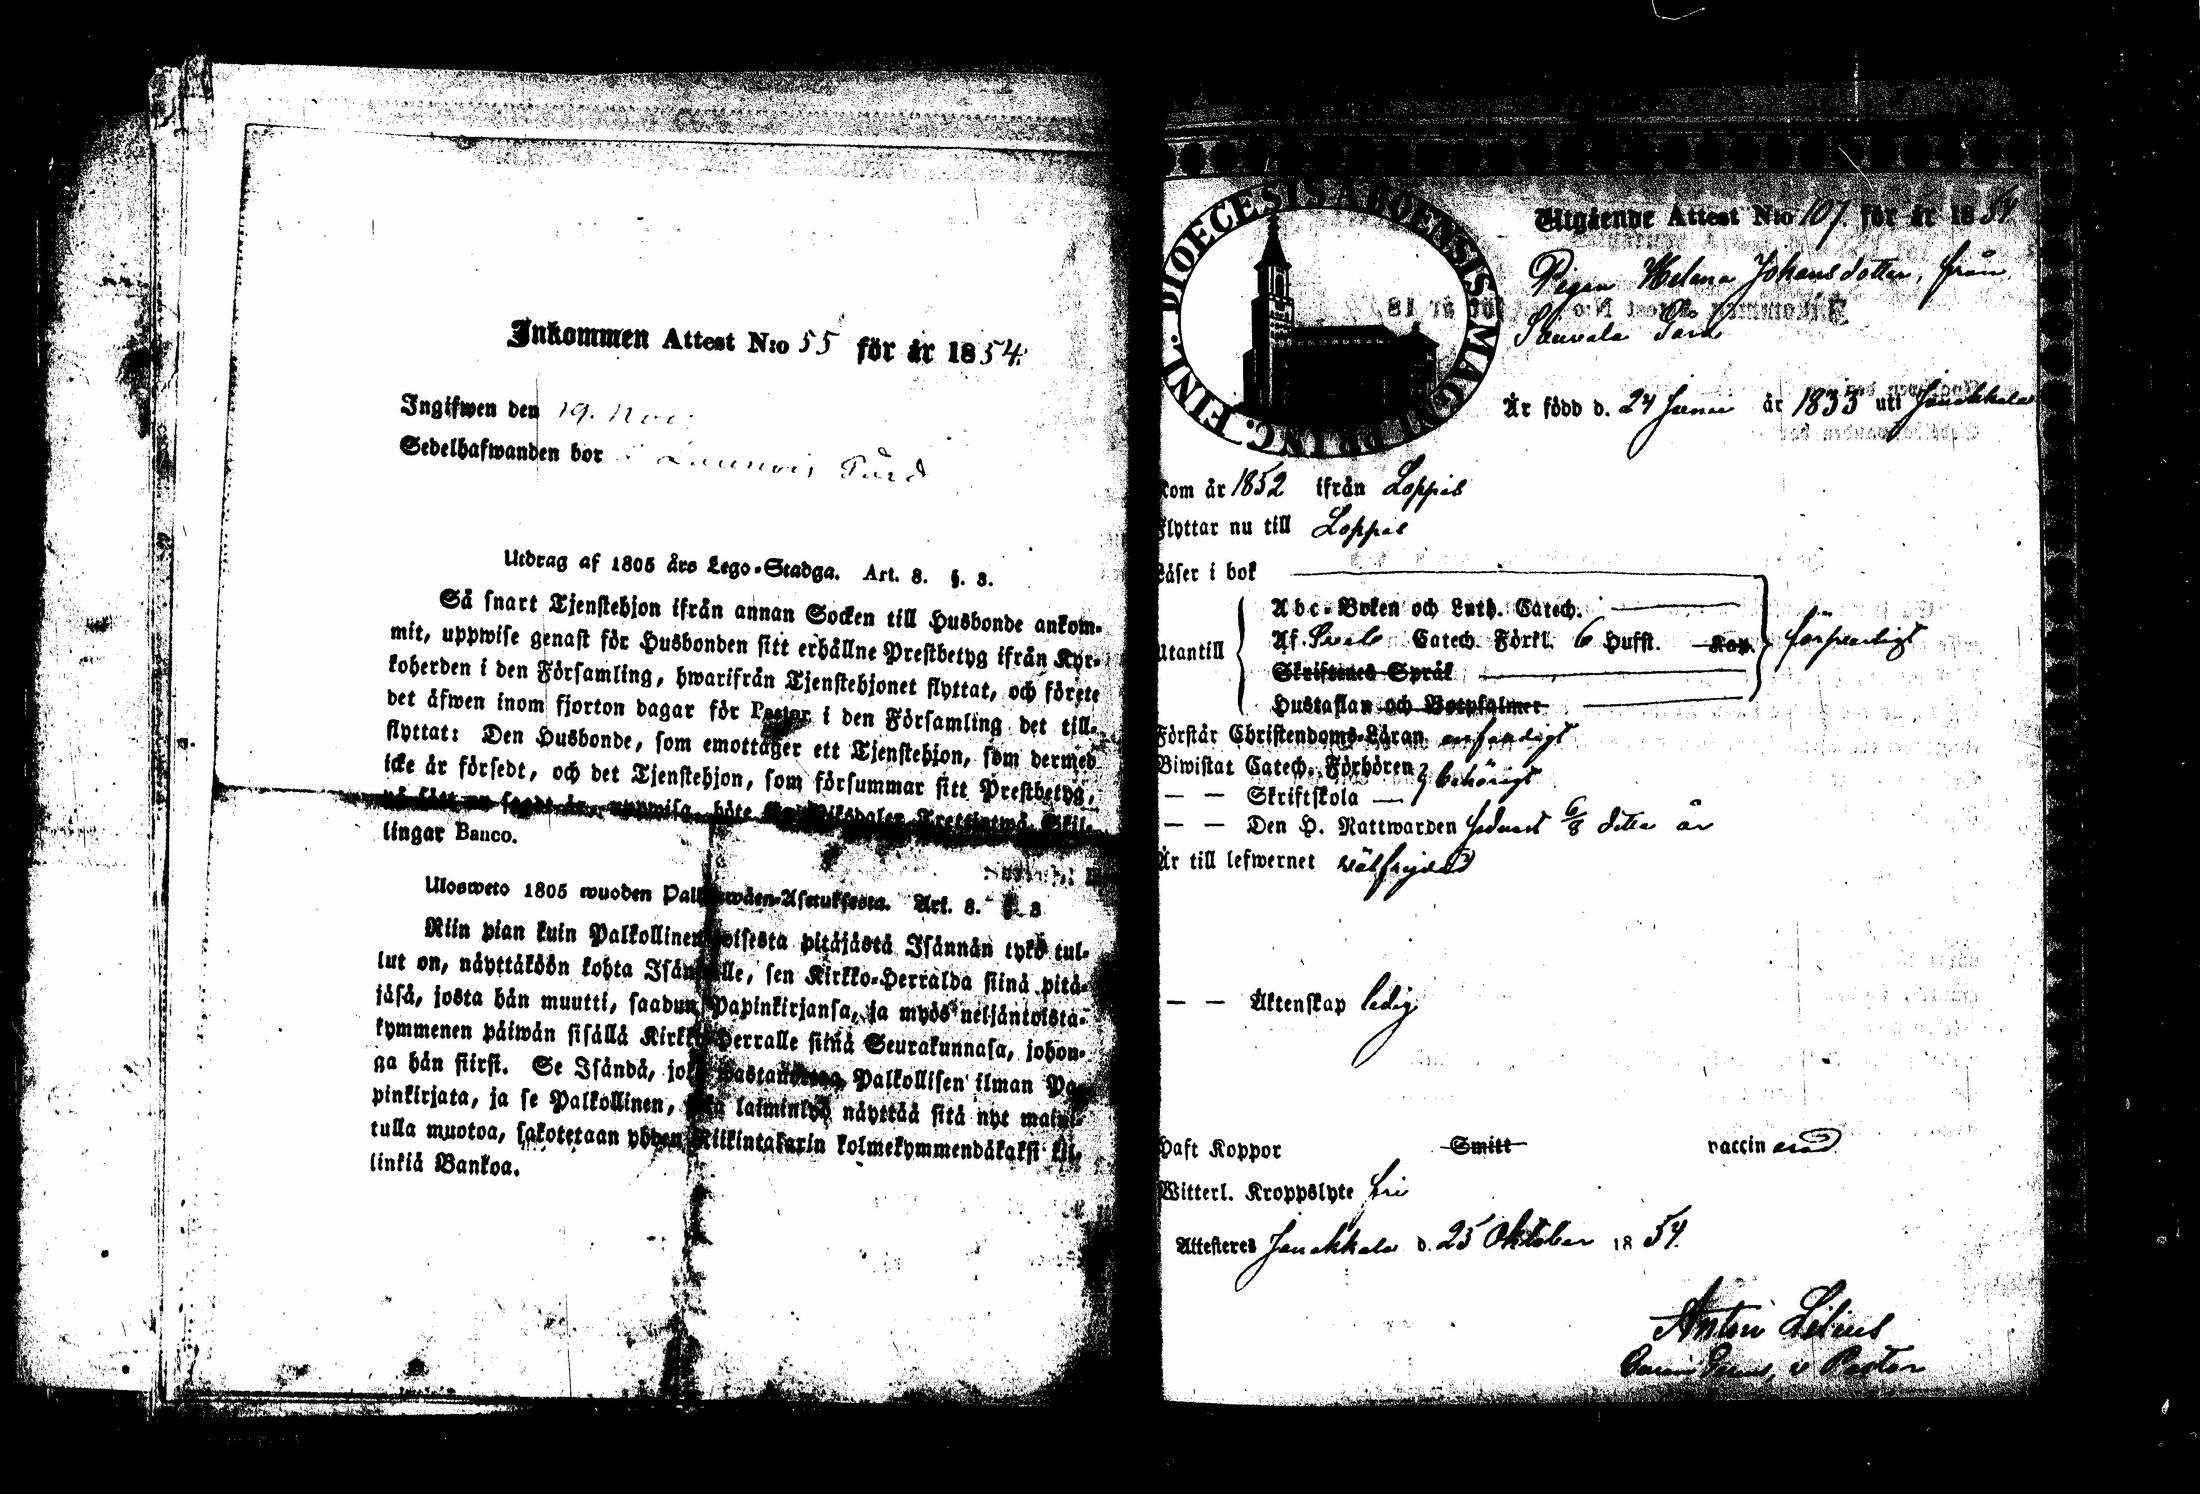 Inkommen Attest N:o 55 för år 1854.
Ingifwen den 19. Nov.
Sedelhafwanden bor i Gård
Utdrag af 1805 års Lego-Stadga. Art. 8. §. 8.
Så snart Tjenstehjon ifrån annan Socken till Husbonde ankom-
mit, uppwise genast för Husbonden sitt erhållne Prestbetyg ifrån Kyr-
koherden i den Församling, hwarifrån Tjenstehjonet flyttat, och förete
det äfwen inom fjorton dagar för Pastor i den Församling det till-
flyttat: Den Husbonde, som emottager ett Tjenstehjon, som dermed
icke är försedt, och det Tjenstehjon, som försummar sitt Prestbetyg,
på sätt nu sagdt är, uppwisa, böte En Riksdaler Trettiotwå Skil-
lingar Banco.
Ulosweto 1805 wuoden Palkkawäen-Asetuksesta. Art. 8. §. 8
Niin pian kuin Palkollinen toisesta pitäjästä Isännän tykö tul-
lut on, näyttäköön kohta Isännälle, sen Kirkko-Herralda siinä pitä-
jäsä, josta hän muutti, saadun Papinkirjansa, ja myös neljäntoista-
kymmenen päiwän sisällä Kirkko-Herralle siinä Seurakunnasa, johon-
ga hän siirsi. Se Isändä, joka wastaanottaa Palkollisen ilman Pa-
pinkirjata, ja se Palkollinen, joka laiminlyö näyttää sitä nyt maini-
tulla muotoa, sakotetaan yhden Riikintalarin kolmekymmendäkaksi kil-
linkiä Bankoa.
DIOECESIS ABOENSIS MAGNI PRINC. FINL.
Utgående Attest N:o 107. för år 1854
Pigan Helena Johansdotter, från
Sauvala Gård
Är född d. 24 Junii år 1833 uti Janakkala
kom år 1852 ifrån Loppis
Flyttar nu till Loppis
Läser i bok
Abc-Boken och Luth. Catech.
Af Svebe Catech. Förkl. 6 Hufft. Kap. försvarligt
Utantill
Skriftenes Språk
Hustaflan och Botpsalmer
Förstår Christendoms-Läran enfaldigt
Biwistat Catech. Förhören
— — Skriftskola — behörigt
— — Den H. Nattwarden sednast 6/8 detta år
Är till lefwernet välfrejdad
— — Äktenskap ledig
Haft Koppor Smitt vaccinerad
Witterl. Kroppslyte fri
Attesteres Janakkala d. 25 Oktober 1854.
Anton Lilius
v Pastor